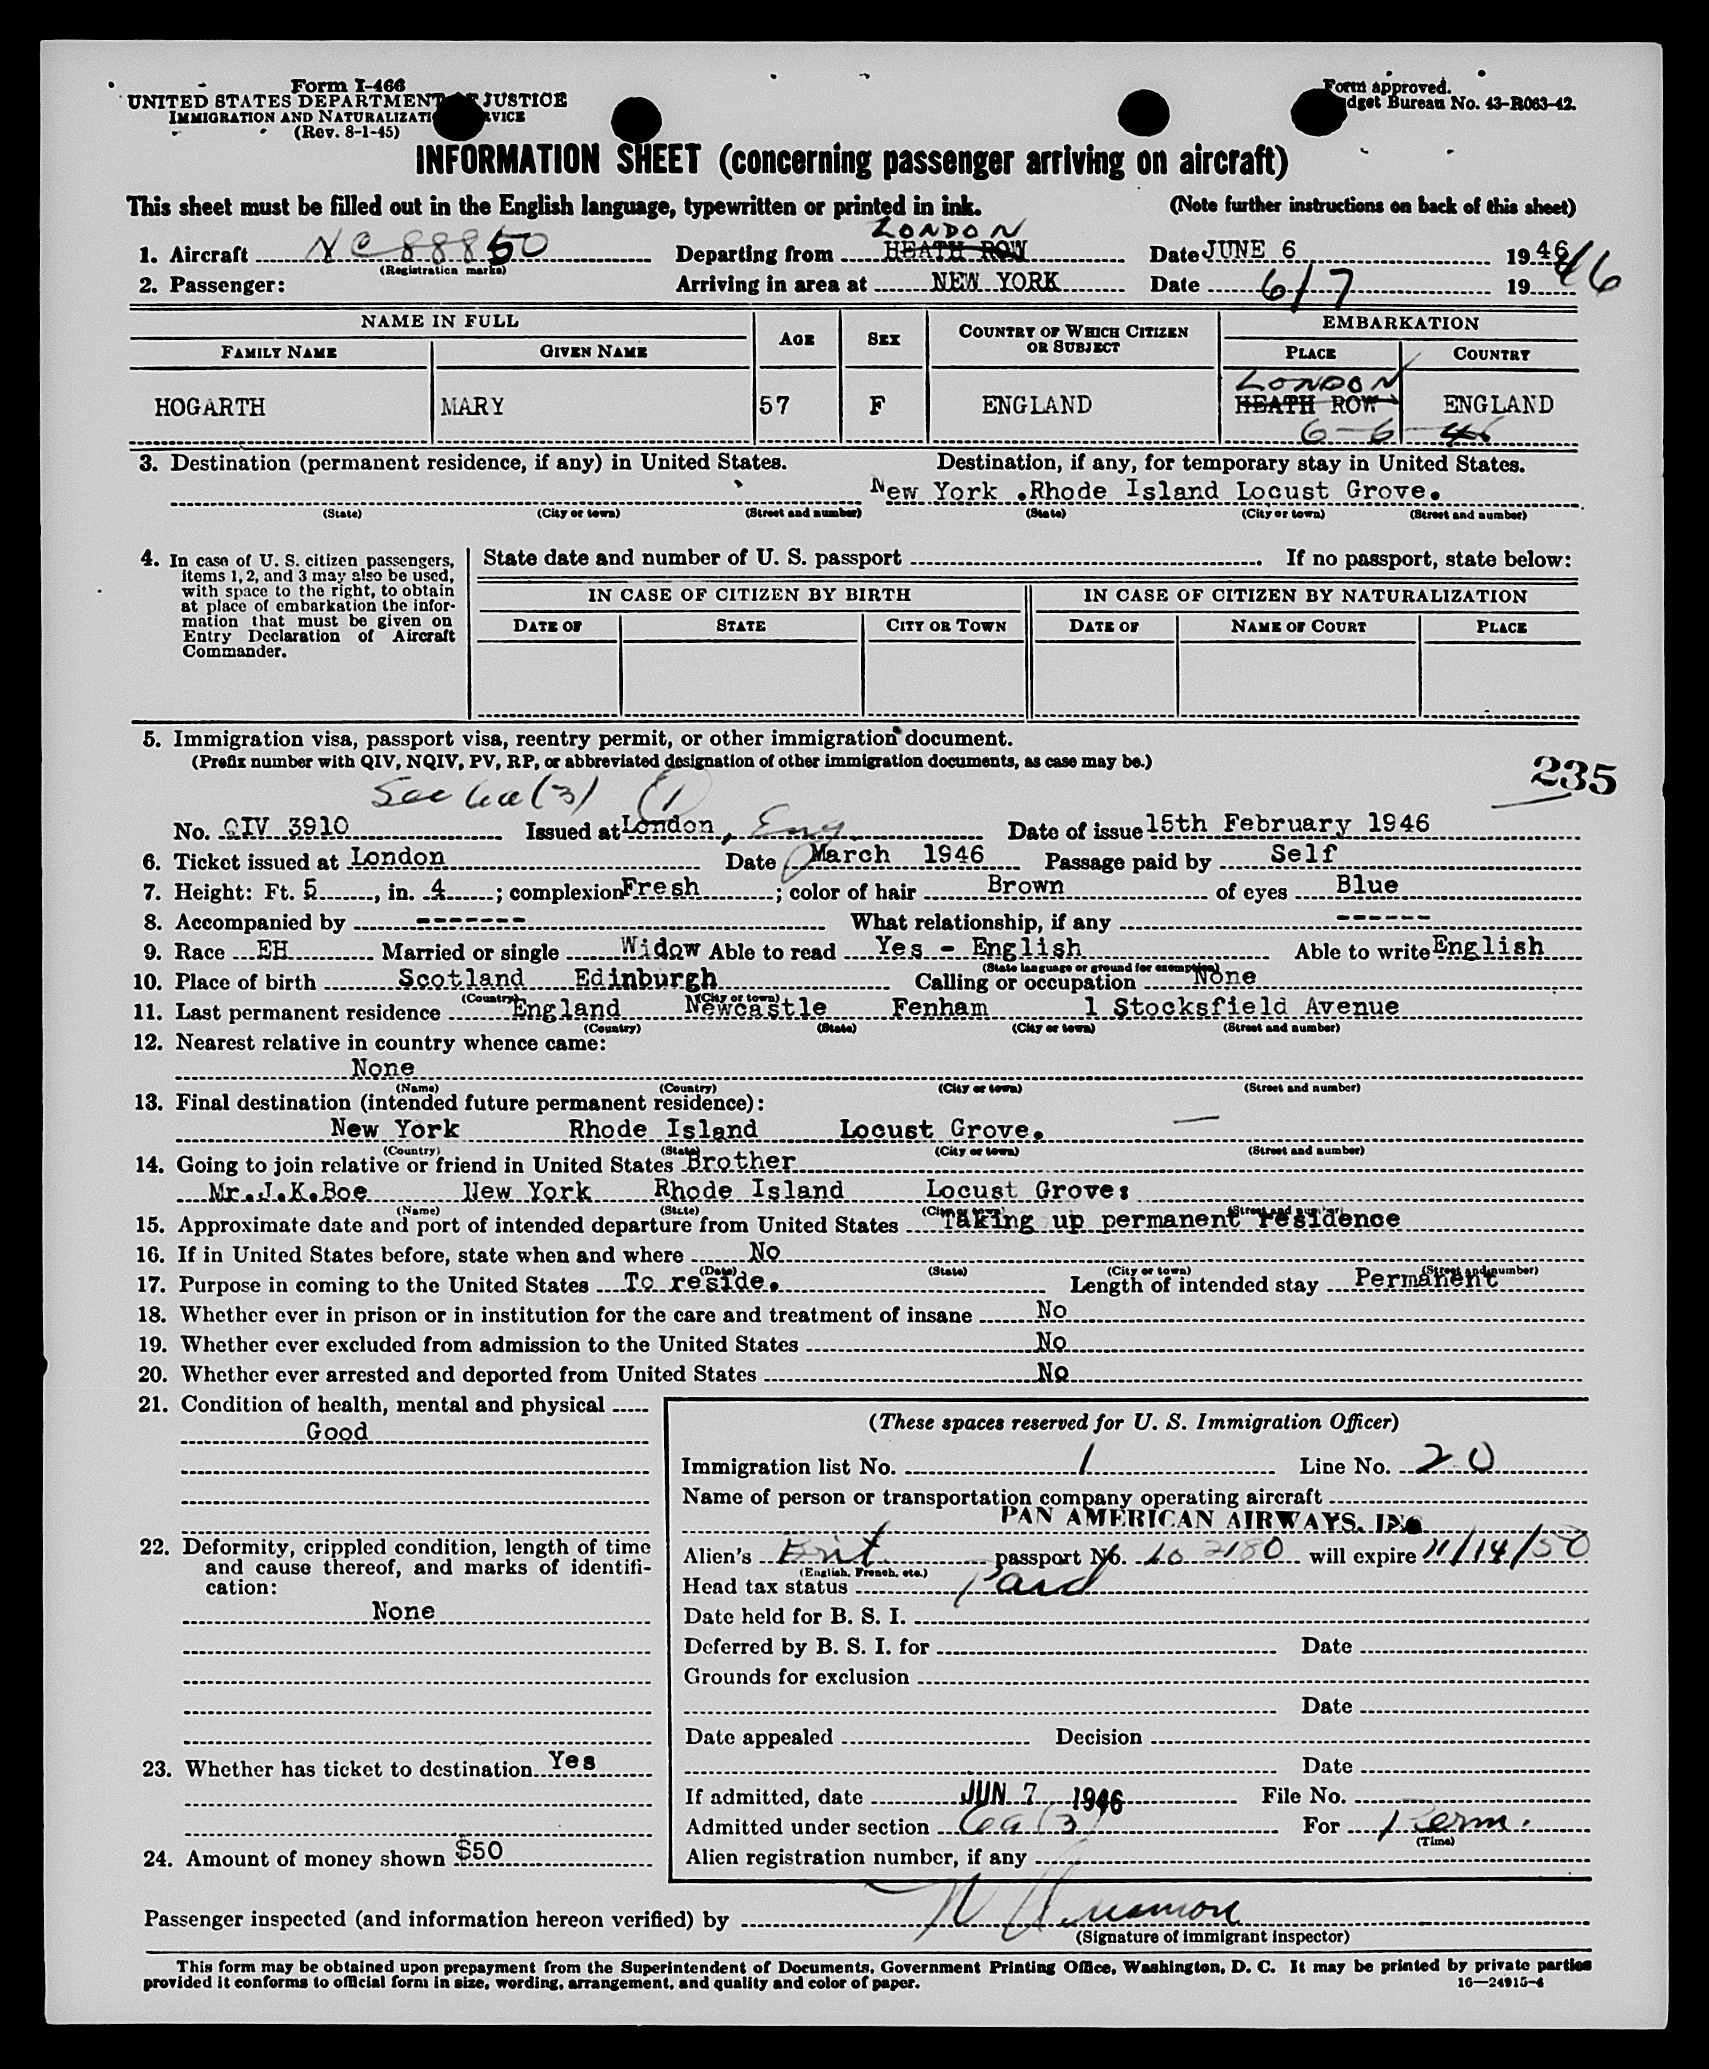 Form I-466
UNITED STATES DEPARTMENT OF JUSTICE
IMMIGRATION AND NATURALIZATION SERVICE
(Rev. 8-1-45)
Form approved.
Budget Bureau No. 43-R063-42.
INFORMATION SHEET (concerning passenger arriving on aircraft)
This sheet must be filled out in the English language, typewritten or printed in ink. (Note further instructions on back of this sheet)
LONDON
1. Aircraft NC 88850 Departing from HEATH ROW Date JUNE 6 1946
(Registration marks)
2. Passenger: Arriving in area at NEW YORK Date 6/7 19 46
NAME IN FULL AGE SEX COUNTRY OF WHICH CITIZEN OR SUBJECT EMBARKATION
FAMILY NAME GIVEN NAME PLACE COUNTRY
LONDON
HOGARTH MARY 57 F ENGLAND HEATH ROW ENGLAND
6-6-46
3. Destination (permanent residence, if any) in United States. Destination, if any, for temporary stay in United States.
New York .Rhode Island Locust Grove.
(State) (City or town) (Street and number) (State) (City or town) (Street and number)
4. In case of U. S. citizen passengers, items 1, 2, and 3 may also be used, with space to the right, to obtain at place of embarkation the information that must be given on Entry Declaration of Aircraft Commander.
State date and number of U. S. passport If no passport, state below:
IN CASE OF CITIZEN BY BIRTH IN CASE OF CITIZEN BY NATURALIZATION
DATE OF STATE CITY OR TOWN DATE OF NAME OF COURT PLACE
5. Immigration visa, passport visa, reentry permit, or other immigration document.
(Prefix number with QIV, NQIV, PV, RP, or abbreviated designation of other immigration documents, as case may be.)
235
Sec 6a(3) (1)
No. QIV 3910 Issued at London, Eng. Date of issue 15th February 1946
6. Ticket issued at London Date March 1946 Passage paid by Self
7. Height: Ft. 5, in. 4; complexion Fresh; color of hair Brown of eyes Blue
8. Accompanied by ------- What relationship, if any ------
9. Race EH Married or single Widow Able to read Yes - English Able to write English
(State language or ground for exemption)
10. Place of birth Scotland Edinburgh Calling or occupation None
(Country) (City or town)
11. Last permanent residence England Newcastle Fenham 1 Stocksfield Avenue
(Country) (State) (City or town) (Street and number)
12. Nearest relative in country whence came:
None
(Name) (Country) (City or town) (Street and number)
13. Final destination (intended future permanent residence):
New York Rhode Island Locust Grove. —
(Country) (State) (City or town) (Street and number)
14. Going to join relative or friend in United States Brother
Mr.J.K.Boe New York Rhode Island Locust Grove:
(Name) (State) (City or town) (Street and number)
15. Approximate date and port of intended departure from United States Taking up permanent residence
16. If in United States before, state when and where No
(Date) (State) (City or town) (Street and number)
17. Purpose in coming to the United States To reside. Length of intended stay Permanent
18. Whether ever in prison or in institution for the care and treatment of insane No
19. Whether ever excluded from admission to the United States No
20. Whether ever arrested and deported from United States No
21. Condition of health, mental and physical
Good
22. Deformity, crippled condition, length of time
and cause thereof, and marks of identification:
None
23. Whether has ticket to destination Yes
24. Amount of money shown $50
(These spaces reserved for U. S. Immigration Officer)
Immigration list No. 1 Line No. 20
Name of person or transportation company operating aircraft
PAN AMERICAN AIRWAYS, INC
Alien's Brit passport No. Lo 2180 will expire 11/14/50
(English, French, etc.)
Head tax status Paid
Date held for B. S. I.
Deferred by B. S. I. for Date
Grounds for exclusion
Date
Date appealed Decision
Date
If admitted, date JUN 7 1946 File No.
Admitted under section 6a(3) For Perm.
(Time)
Alien registration number, if any
Passenger inspected (and information hereon verified) by
(Signature of immigrant inspector)
This form may be obtained upon prepayment from the Superintendent of Documents, Government Printing Office, Washington, D. C. It may be printed by private parties
provided it conforms to official form in size, wording, arrangement, and quality and color of paper. 16—24915-4